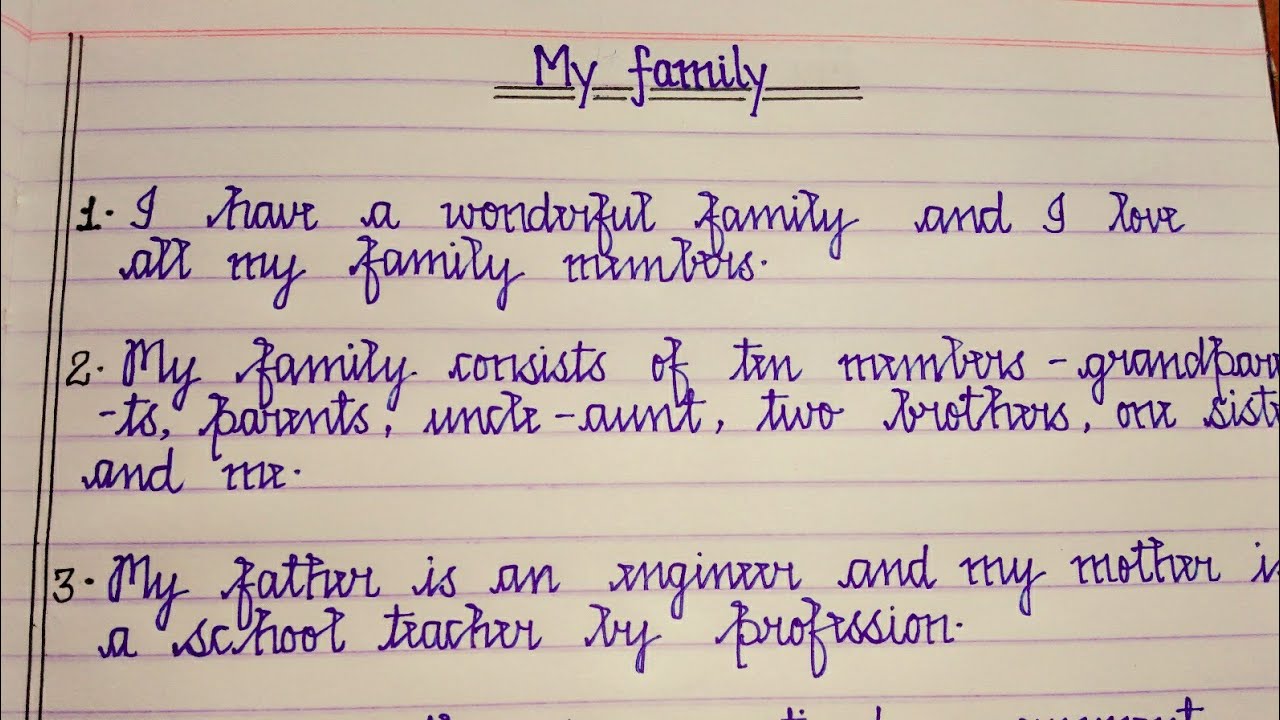 My family
1. I have a wonderful family and I love
all my family members.
2. My family consists of ten members - grandpar
-ts, parents, uncle-aunt, two brothers, one sist
and me.
3. My father is an engineer and my mother is
a school teacher by profession.